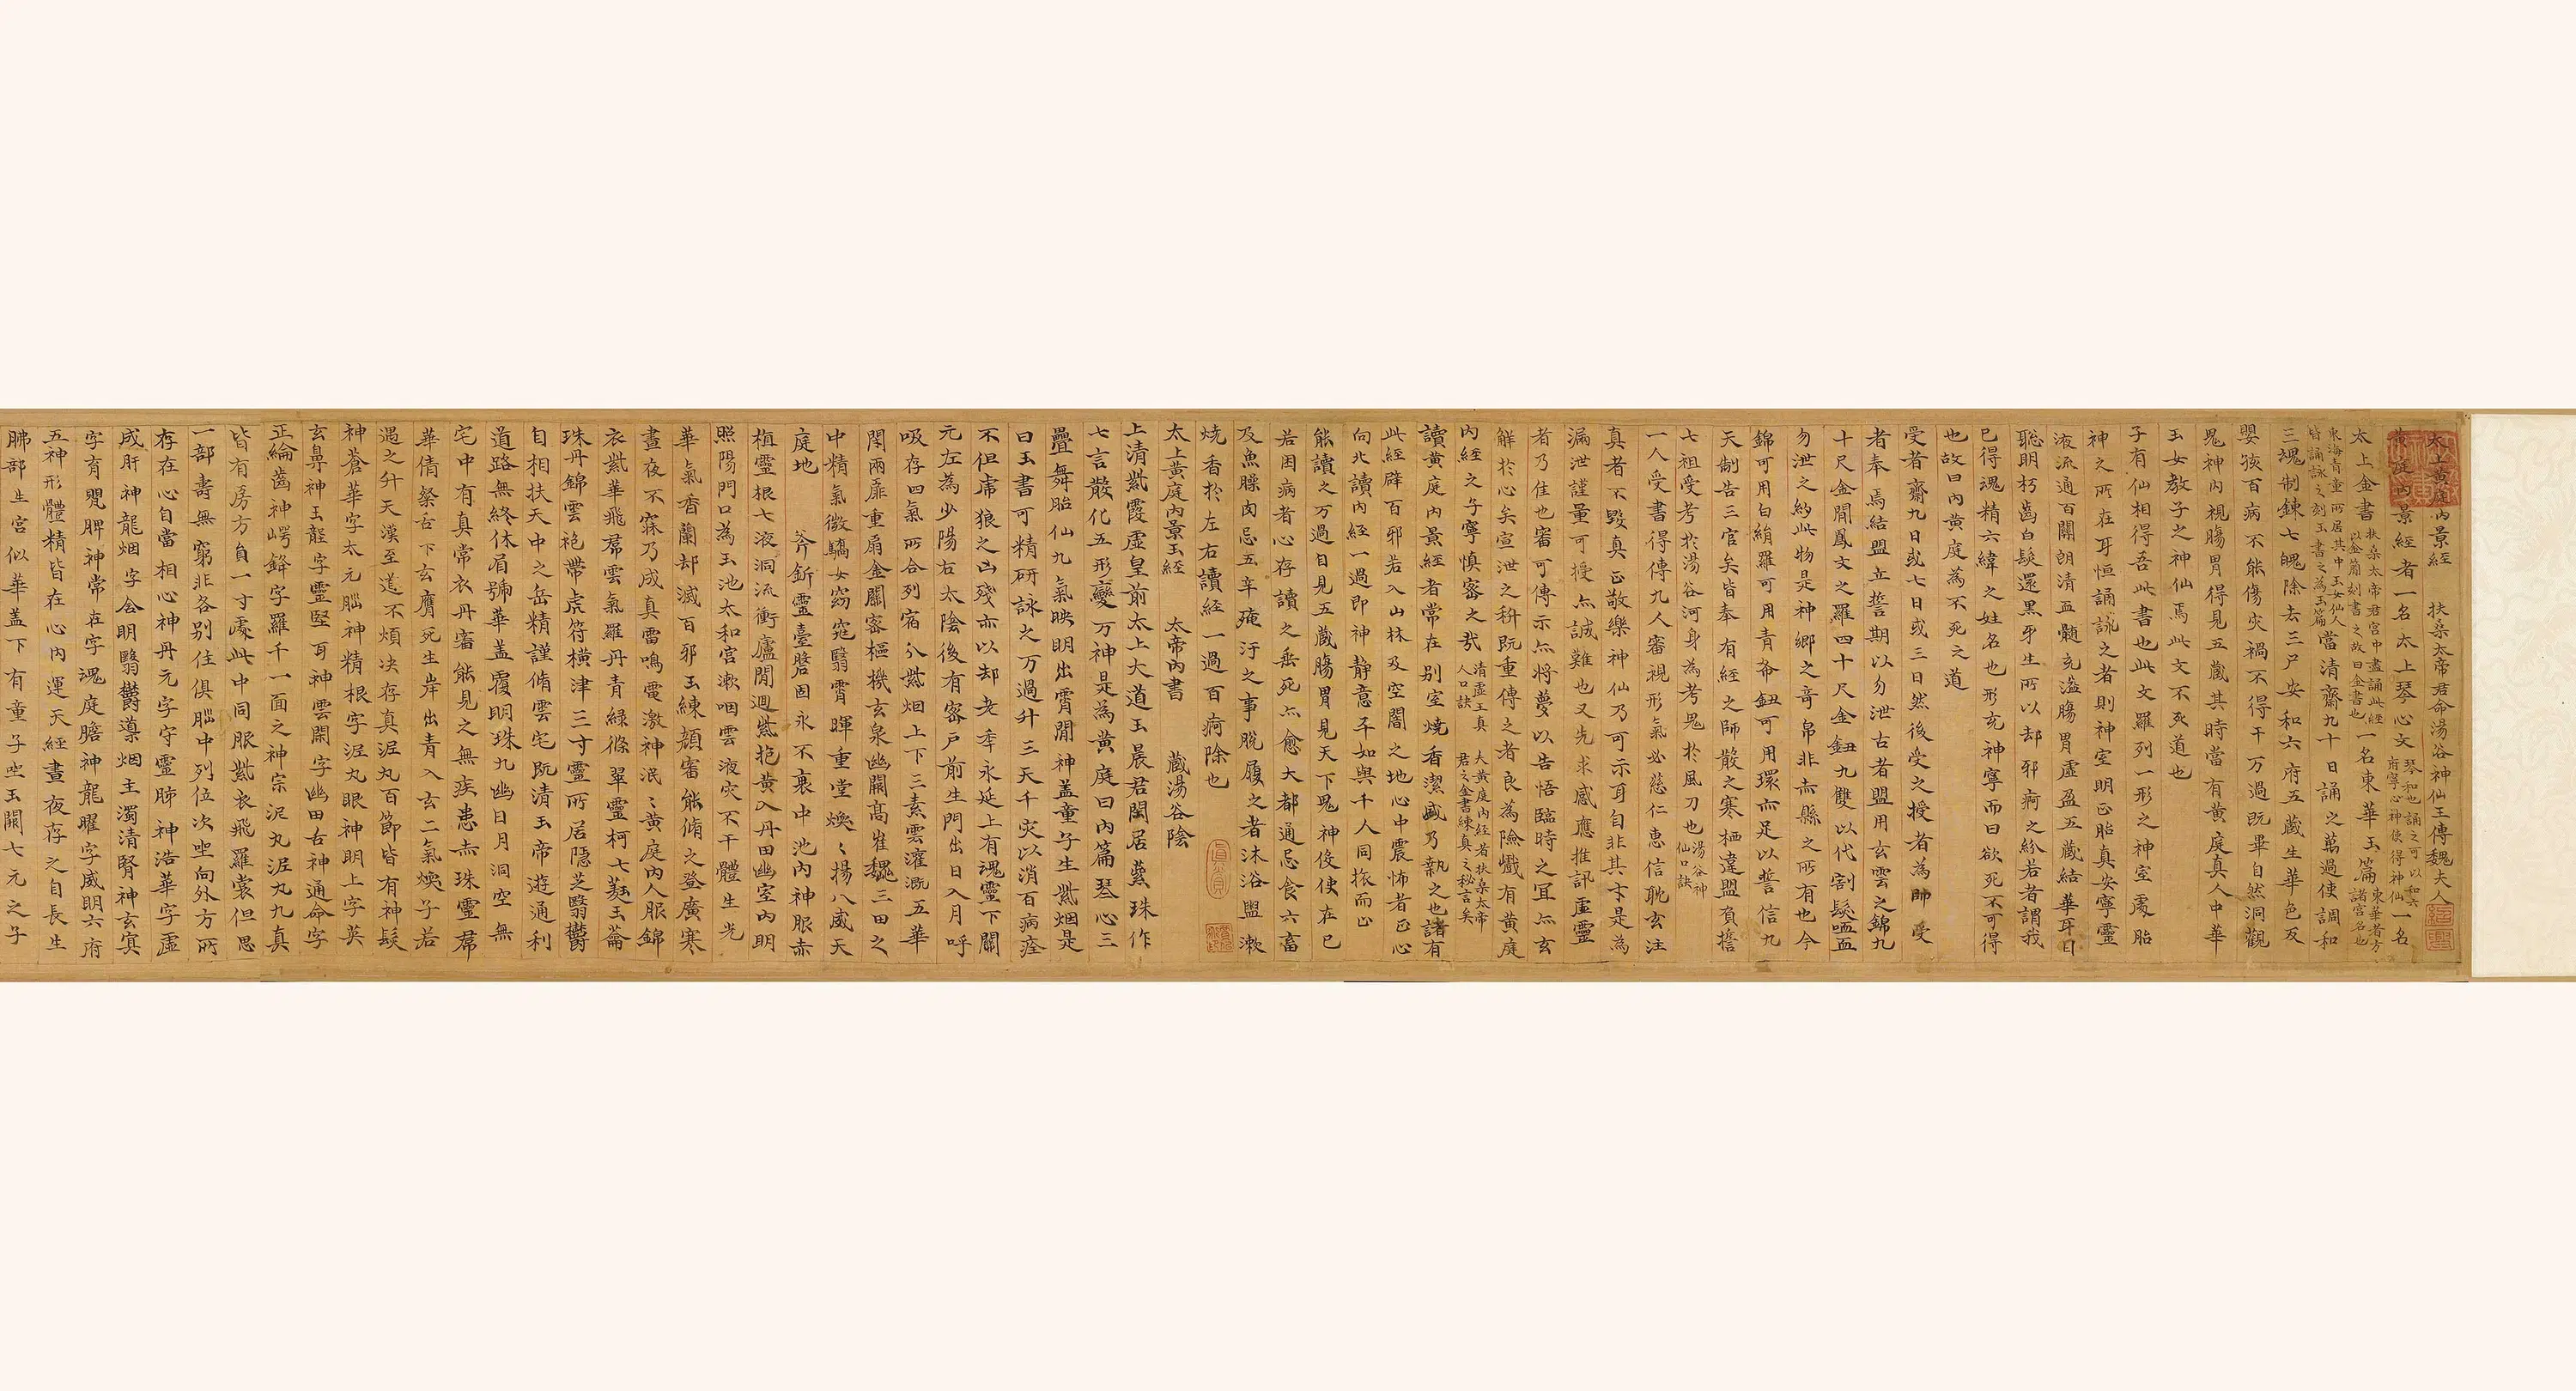 太上黄庭內景經　扶桑太帝君命湯谷神仙王傳魏夫人
黄庭內景經者一名太上琴心文琴和也誦之可以和六府寧心神使得神仙一名
太上金書扶桑太帝君宮中盡誦此經以金簡刻書之故曰金書也一名東華玉篇東華者方諸宮名也
東海青童所居其中玉女仙人皆誦詠之刻玉書之為玉篇當清齋九十日誦之萬過使調和
三魂制鍊七魄除去三尸安和六府五藏生華色反
嬰孩百病不能傷灾禍不得干万過既畢自然洞觀
鬼神內視腸胃得見五藏其時當有黄庭真人中華
玉女教子之神仙焉此文不死道也
子有仙相得吾此書也此文羅列一形之神室處胎
神之所在耳恒誦詠之者則神室明正胎真安寧靈
液流通百關朗清血髓充溢腸胃虛盈五藏結華耳目
聰明朽齒白髮還黑牙生所以却邪痾之紛若者謂我
已得魂精六緯之姓名也形充神寧而曰欲死不可得
也故曰內黄庭為不死之道
受者齋九日或七日或三日然後受之授者為師受
者奉焉結盟立誓期以勿泄古者盟用玄雲之錦九
十尺金簡鳳文之羅四十尺金鈕九雙以代割髮歃血
勿泄之約此物是神鄉之奇帛非赤縣之所有也今
錦可用白絹羅可用青布鈕可用環亦足以誓信九
天制告三官矣皆奉有經之師散之寒栖違盟負誓
七祖受考於湯谷河身為考鬼於風刀也湯谷神仙口訣
一人受書得傳九人審視形氣必慈仁惠信耽玄注
真者不毀真正敬樂神仙乃可示耳自非其才是為
漏泄謹量可授亦誠難也又先求感應推訊虛靈
者乃佳也審可傳示亦將夢以告悟臨時之宜亦玄
解於心矣宣泄之科既重傳之者良為險戲有黄庭
內經之子寧慎密之哉清虛王真人口訣　大黄庭內經者扶桑太帝君之金書練真之秘言矣
讀黄庭內景經者常在別室燒香潔盛乃執之也諸有
此經辟百邪若入山林及空闇之地心中震怖者正心
向北讀內經一過即神靜意平如與千人同旅而止
能讀之万過自見五藏腸胃見天下鬼神役使在己
若困病者心存讀之垂死亦愈大都通忌食六畜
及魚臊肉忌五辛淹汙之事脫履之者沐浴盥漱
燒香於左右讀經一過百痾除也
太上黄庭內景玉經　太帝內書　藏湯谷陰
上清紫霞虛皇前太上大道玉晨君閑居蘂珠作
七言散化五形變万神是為黄庭曰內篇琴心三
疊舞胎仙九氣映明出霄間神盖童子生紫烟是
曰玉書可精研詠之万過升三天千灾以消百病痊
不憚虎狼之凶殘亦以却老年永延上有魂靈下關
元左為少陽右太陰後有密戶前生門出日入月呼
吸存四氣所合列宿分紫烟上下三素雲灌溉五華
閇兩扉重扇金關密樞機玄泉幽關高崔巍三田之
中精氣微驕女窈窕翳霄暉重堂煥〻揚八威天
庭地　斧釿靈臺磐固永不衰中池內神服赤
植靈根七液洞流衝廬間迴紫抱黄入丹田幽室內明
照陽門口為玉池太和宮漱咽靈液灾不干體生光
華氣香蘭却滅百邪玉練顏審能脩之登廣寒
晝夜不寐乃成真雷鳴電激神泯〻黄庭內人服錦
衣紫華飛帬雲氣羅丹青綠絛翠靈柯七蕤玉籥
珠丹錦雲袍帶虎符橫津三寸靈所居隱芝翳鬱
自相扶天中之岳精謹脩雲宅既清玉帝遊通利
道路無終休眉號華盖覆明珠九幽日月洞空無
宅中有真常衣丹審能見之無疾患赤珠靈帬
華蒨粲舌下玄膺死生岸出青入玄二氣煥子若
遇之升天漢至道不煩决存真泥丸百節皆有神髮
神蒼華字太元腦神精根字泥丸眼神明上字英
玄鼻神玉壟字靈堅耳神雲閑字幽田舌神通命字
正綸齒神崿鋒字羅千一面之神宗泥丸泥丸九真
皆有房方負一寸處此中同服紫衣飛羅裳但思
一部壽無窮非各別住俱腦中列位次坐向外方所
存在心自當相心神丹元字守靈肺神浩華字虛
成肝神龍烟字含明翳鬱導烟主濁清腎神玄冥
字育嬰脾神常在字魂庭膽神龍曜字威明六府
五神形體精皆在心內運天經晝夜存之自長生
肺部生宮似華盖下有童子坐玉闕七元之子